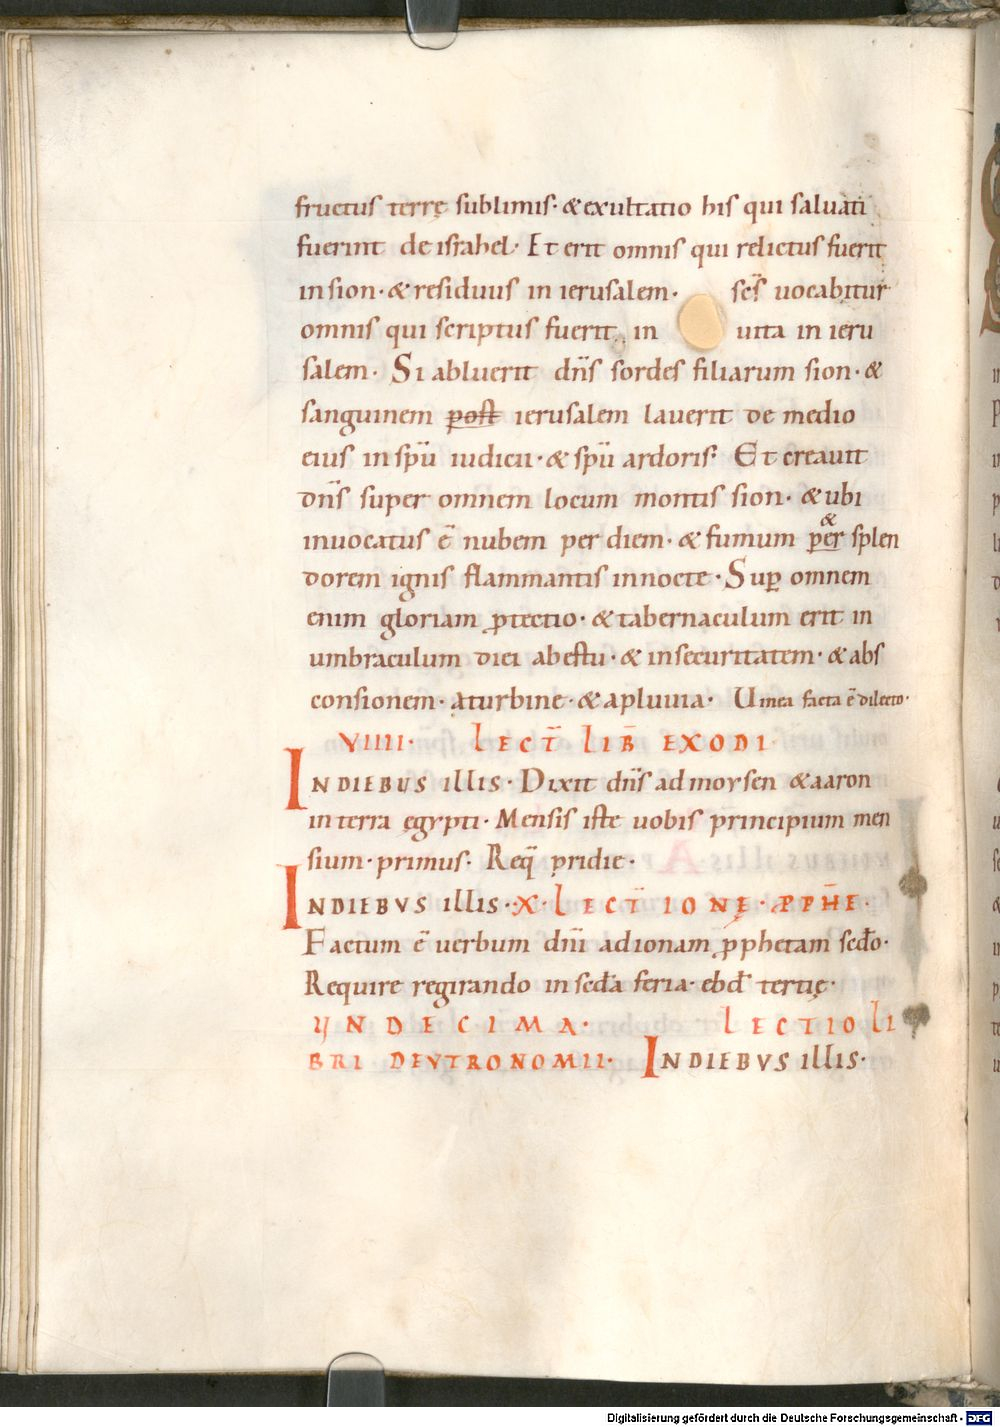 fructus terrę sublimis· & exultatio his qui saluati
fuerint de israhel· Et erit omnis qui relictus fuerit
in sion· & residuus in ierusalem· scs̄ uocabitur
omnis qui scriptus fuerit in uita in ieru
salem· Si abluerit dn̄s sordes filiarum sion· &
sanguinem post ierusalem lauerit de medio
eius in spū iudicii· & spū ardoris· Et creauit
dn̄s super omnem locum montis sion· & ubi
inuocatus ē nubem per diem· & fumum per & splen
dorem ignis flammantis in nocte· Sup̄ omnem
enim gloriam ꝓtectio· & tabernaculum erit in
umbraculum diei ab estu· & in securitatem· & abs
consionem· a turbine· & a pluuia· Uinea facta ē dilecto·
VIIII· LECT̄ LIB̄ EXODI·
INDIEBUS illis· Dixit dn̄s ad moysen & aaron
in terra ęgypti· Mensis iste uobis principium men
sium· primus· Req̄ pridie·
INDIEBVS illis· X· LECTIONĘ· PPHE·
Factum ē uerbum dn̄i ad ionam ꝓphetam scdo·
Require regirando in scda feria· ebd tertię·
VNDECIMA· LECTIO LI
BRI DEVTRONOMII· INDIEBVS illis·
Digitalisierung gefördert durch die Deutsche Forschungsgemeinschaft - DFG